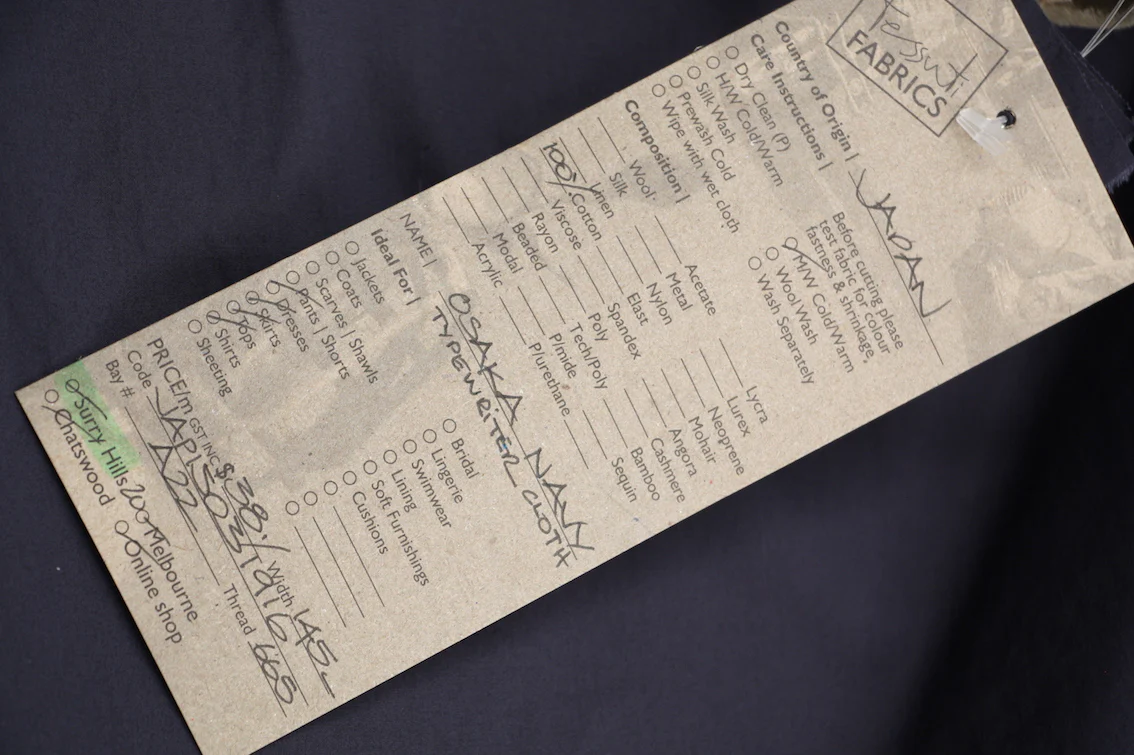 Tessuti
FABRICS
Country of Origin | JAPAN
Care Instructions |
Before cutting please
test fabric for colour
fastness & shrinkage.
Dry Clean (P)
H/W Cold/Warm
Silk Wash
Prewash Cold
Wipe with wet cloth
M/W Cold/Warm
Wool Wash
Wash Separately
Composition |
Wool
Silk
Linen
100% Cotton
Viscose
Rayon
Beaded
Modal
Acrylic
Acetate
Metal
Nylon
Elast
Spandex
Poly
Tech/Poly
P/mide
P/urethane
Lycra
Lurex
Neoprene
Mohair
Angora
Cashmere
Bamboo
Sequin
NAME | OSAKA NAVY
TYPEWRITER CLOTH
Ideal For |
Jackets
Coats
Scarves | Shawls
Pants | Shorts
Dresses
Skirts
Tops
Shirts
Sheeting
Bridal
Lingerie
Swimwear
Lining
Soft Furnishings
Cushions
PRICE/m GST INC $38/ Width 145
Code
Bay # A22 Thread 665
Surry Hills Melbourne
Chatswood Online shop